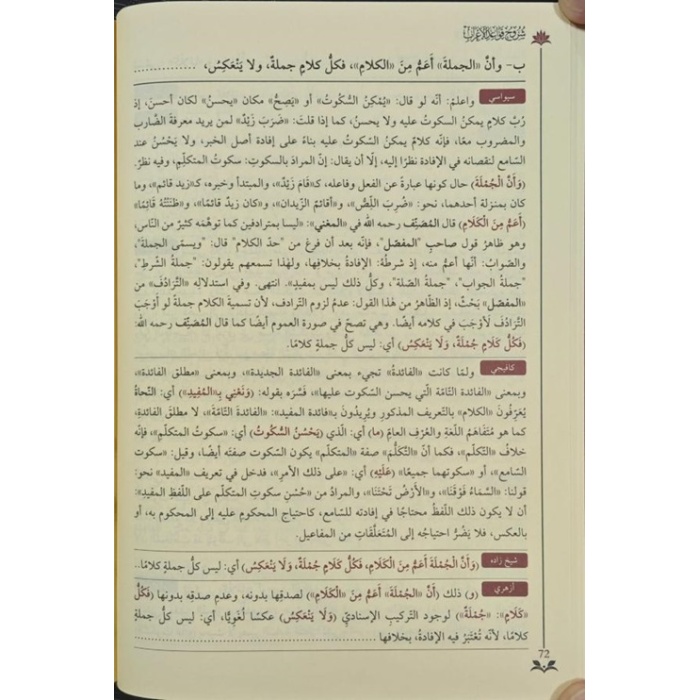 شروح قواعد الإعراب
ب- وأنَّ «الجملةَ» أَعَمُّ مِنَ «الكلامِ»، فكلُّ كلامٍ جملةٌ، ولا يَنْعَكِسُ،
سيواسي واعلمْ: أنّه لو قال: «يُمْكِنُ السُّكُوتُ» أو «يَصِحُّ» مكان «يحسنُ» لكان أحسنَ، إذ
رُبَّ كلامٍ يمكنُ السكوتُ عليه ولا يحسنُ، كما إذا قلتَ: «ضَرَبَ زَيْدٌ» لمن يريد معرفةَ الضّارب
والمضروب معًا، فإنّه كلامٌ يمكنُ السكوتُ عليه بناءً على إفادة أصل الخبر، ولا يَحْسُنُ عند
السّامع لنقصانه في الإفادة نظرًا إليه، إلّا أن يقال: إنّ المرادَ بالسكوتِ: سكوتُ المتكلّمِ، وفيه نظرٌ.
(وَأَنَّ الْجُمْلَةَ) حال كونها عبارةً عن الفعل وفاعله، كـ«قَامَ زَيْدٌ»، والمبتدأ وخبره، كـ«زيد قائم»، وما
كان بمنزلة أحدهما، نحو: «ضُرِبَ اللِّصُّ»، و«أقائمٌ الزّيدان»، و«كان زيدٌ قائمًا»، و«ظَنَنْتُهُ قَائِمًا»
(أَعَمُّ مِنَ الْكَلَامِ) قال المُصَنِّف رحمه الله في «المغني»: «ليسا بمترادفين كما توهّمَه كثيرٌ من النّاس،
وهو ظاهرُ قول صاحبِ "المفصّل"، فإنّه بعد أن فرغ من "حدّ الكلام" قال: "ويسمّى الجملةَ"،
والصّوابُ: أنّها أعمّ منه، إذ شرطُهُ: الإفادةُ بخلافها، ولهٰذا تسمعهم يقولون: "جملةُ الشّرطِ"،
"جملةُ الجواب"، "جملةُ الصّلة"، وكلُّ ذلك ليس بمفيدٍ». انتهى. وفي استدلالِهِ «التَّرَادُفَ» من
«المفصّل» بَحْثٌ، إذ الظّاهرُ من هٰذا القول: عدمُ لزوم التّرادف، لأن تسميةَ الكلام جملةً لو أَوْجَبَ
التّرَادُفَ لَأَوْجَبَ في كلامه أيضًا. وهي تصحّ في صورة العموم أيضًا كما قال المُصَنِّف رحمه الله:
(فَكُلُّ كَلَامٍ جُمْلَةٌ، وَلَا يَنْعَكِسُ) أي: ليس كلُّ جملةٍ كلامًا.
كافيجي ولمّا كانت «الفائدةُ» تجيء بمعنى «الفائدة الجديدة»، وبمعنى «مطلق الفائدة»،
وبمعنى «الفائدة التّامّة الّتي يحسن السكوت عليها»، فَسَّرَه بقوله: (وَنَعْنِي بِـ«الْمُفِيدِ») أي: النُّحاةُ
يُعَرِّفُونَ «الكلام» بالتّعريف المذكور ويُرِيدُونَ بـ«فائدة المفيد»: «الفائدةَ التّامّةَ»، لا مطلقَ الفائدةِ،
كما هو مُتَفَاهَمُ اللّغةِ والعُرْفِ العامِّ (ما) أي: الّذي (يَحْسُنُ السُّكُوتُ) أي: «سكوتُ المتكلّمِ»، فإنّه
خلافُ «التّكلّم»، فكما أنّ «التَّكَلُّمَ» صفة «المتكلّم» يكون السّكوت صفته أيضًا، وقيل: «سكوت
السّامع»، أو «سكوتهما جميعًا» (عَلَيْهِ) أي: «على ذلك الأمرِ»، فدخل في تعريف «المفيد» نحو:
قولنا: «السَّمَاءُ فَوْقَنَا»، و«الْأَرْضُ تَحْتَنَا»، والمرادُ من «حُسْنِ سكوتِ المتكلّمِ على اللّفظِ المفيدِ»:
أن لا يكون ذلك اللّفظُ محتاجًا في إفادته للسّامع، كاحتياجِ المحكوم عليه إلى المحكوم به، أو
بالعكس، فلا يَضُرُّ احتياجُه إلى المُتَعَلَّقاتِ من المفاعيل.
شيخ زاده (وَأَنَّ الْجُمْلَةَ أَعَمُّ مِنَ الْكَلَامِ، فَكُلُّ كَلَامٍ جُمْلَةٌ، وَلَا يَنْعَكِسُ) أي: ليس كلُّ جملةٍ كلامًا..
أزهري (و) ذلك (أَنَّ «الْجُمْلَةَ» أَعَمُّ مِنَ «الْكَلَامِ») لصدقِها بدونه، وعدمِ صدقِه بدونها (فَكُلُّ
«كَلَامٍ»: «جُمْلَةٌ») لوجود التّركيبِ الإسناديِّ (وَلَا يَنْعَكِسُ) عكسًا لُغَوِيًّا، أي: ليس كلُّ جملةٍ
كلامًا، لأنّه تُعْتَبَرُ فيه الإفادةُ، بخلافها
72